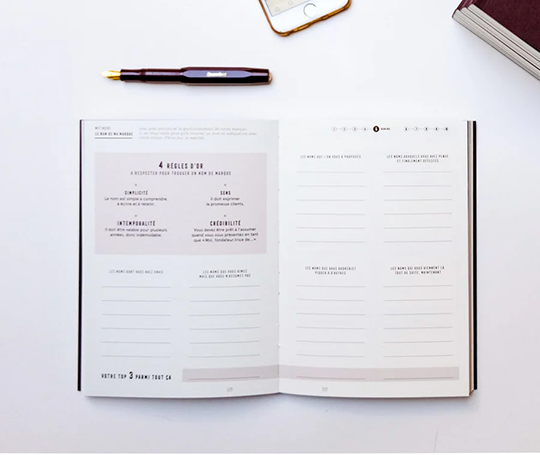 MÉTHODE
LE NOM DE MA MARQUE
4 RÈGLES D'OR
À RESPECTER POUR TROUVER UN NOM DE MARQUE
SIMPLICITÉ
Le nom est simple à comprendre,
à écrire et à retenir.
SENS
Il doit exprimer
la promesse clients.
INTEMPORALITÉ
Il doit être valable pour plusieurs
années, donc indémodable.
CRÉDIBILITÉ
Vous devez être prêt à l'assumer
quand vous vous présentez en tant
que «Moi, fondateur.trice de...»
LES NOMS DONT VOUS RÊVEZ
LES NOMS QUE VOUS AIMEZ
MAIS QUE VOUS N'OSEREZ PAS
VOTRE TOP 3 PARMI TOUT ÇA
1 2 3 4 5
6 7 8 9
LES NOMS QUE L'ON VOUS A PROPOSÉS
LES NOMS AUXQUELS VOUS AVEZ PENSÉ
ET FINALEMENT DÉLAISSÉS
LES NOMS QUE VOUS AIMERIEZ
PIQUER À D'AUTRES
LES NOMS QUI VOUS VIENNENT LÀ
TOUT DE SUITE, MAINTENANT